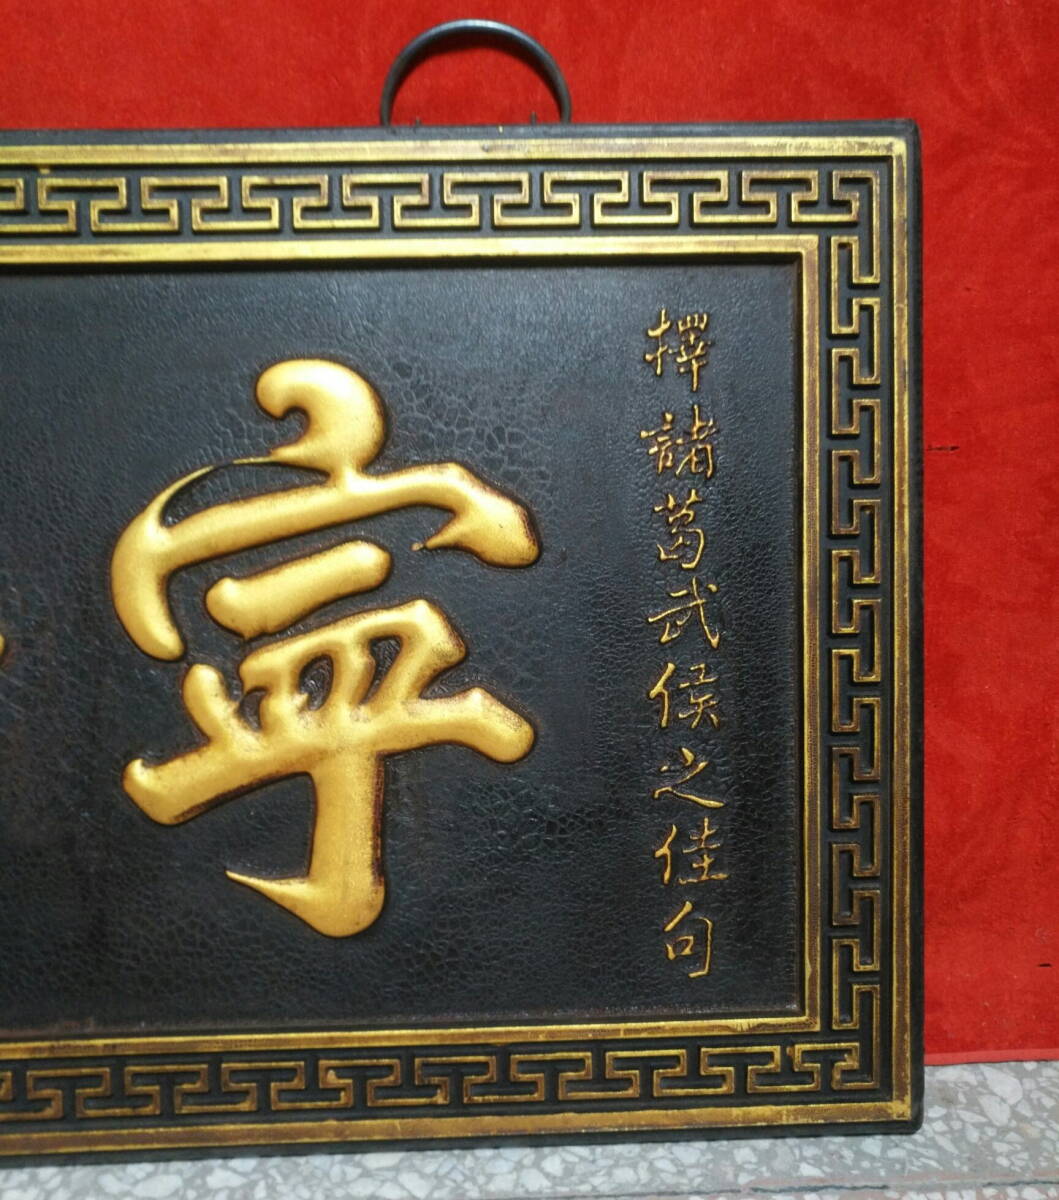 擇諸葛武侯之佳句
寧